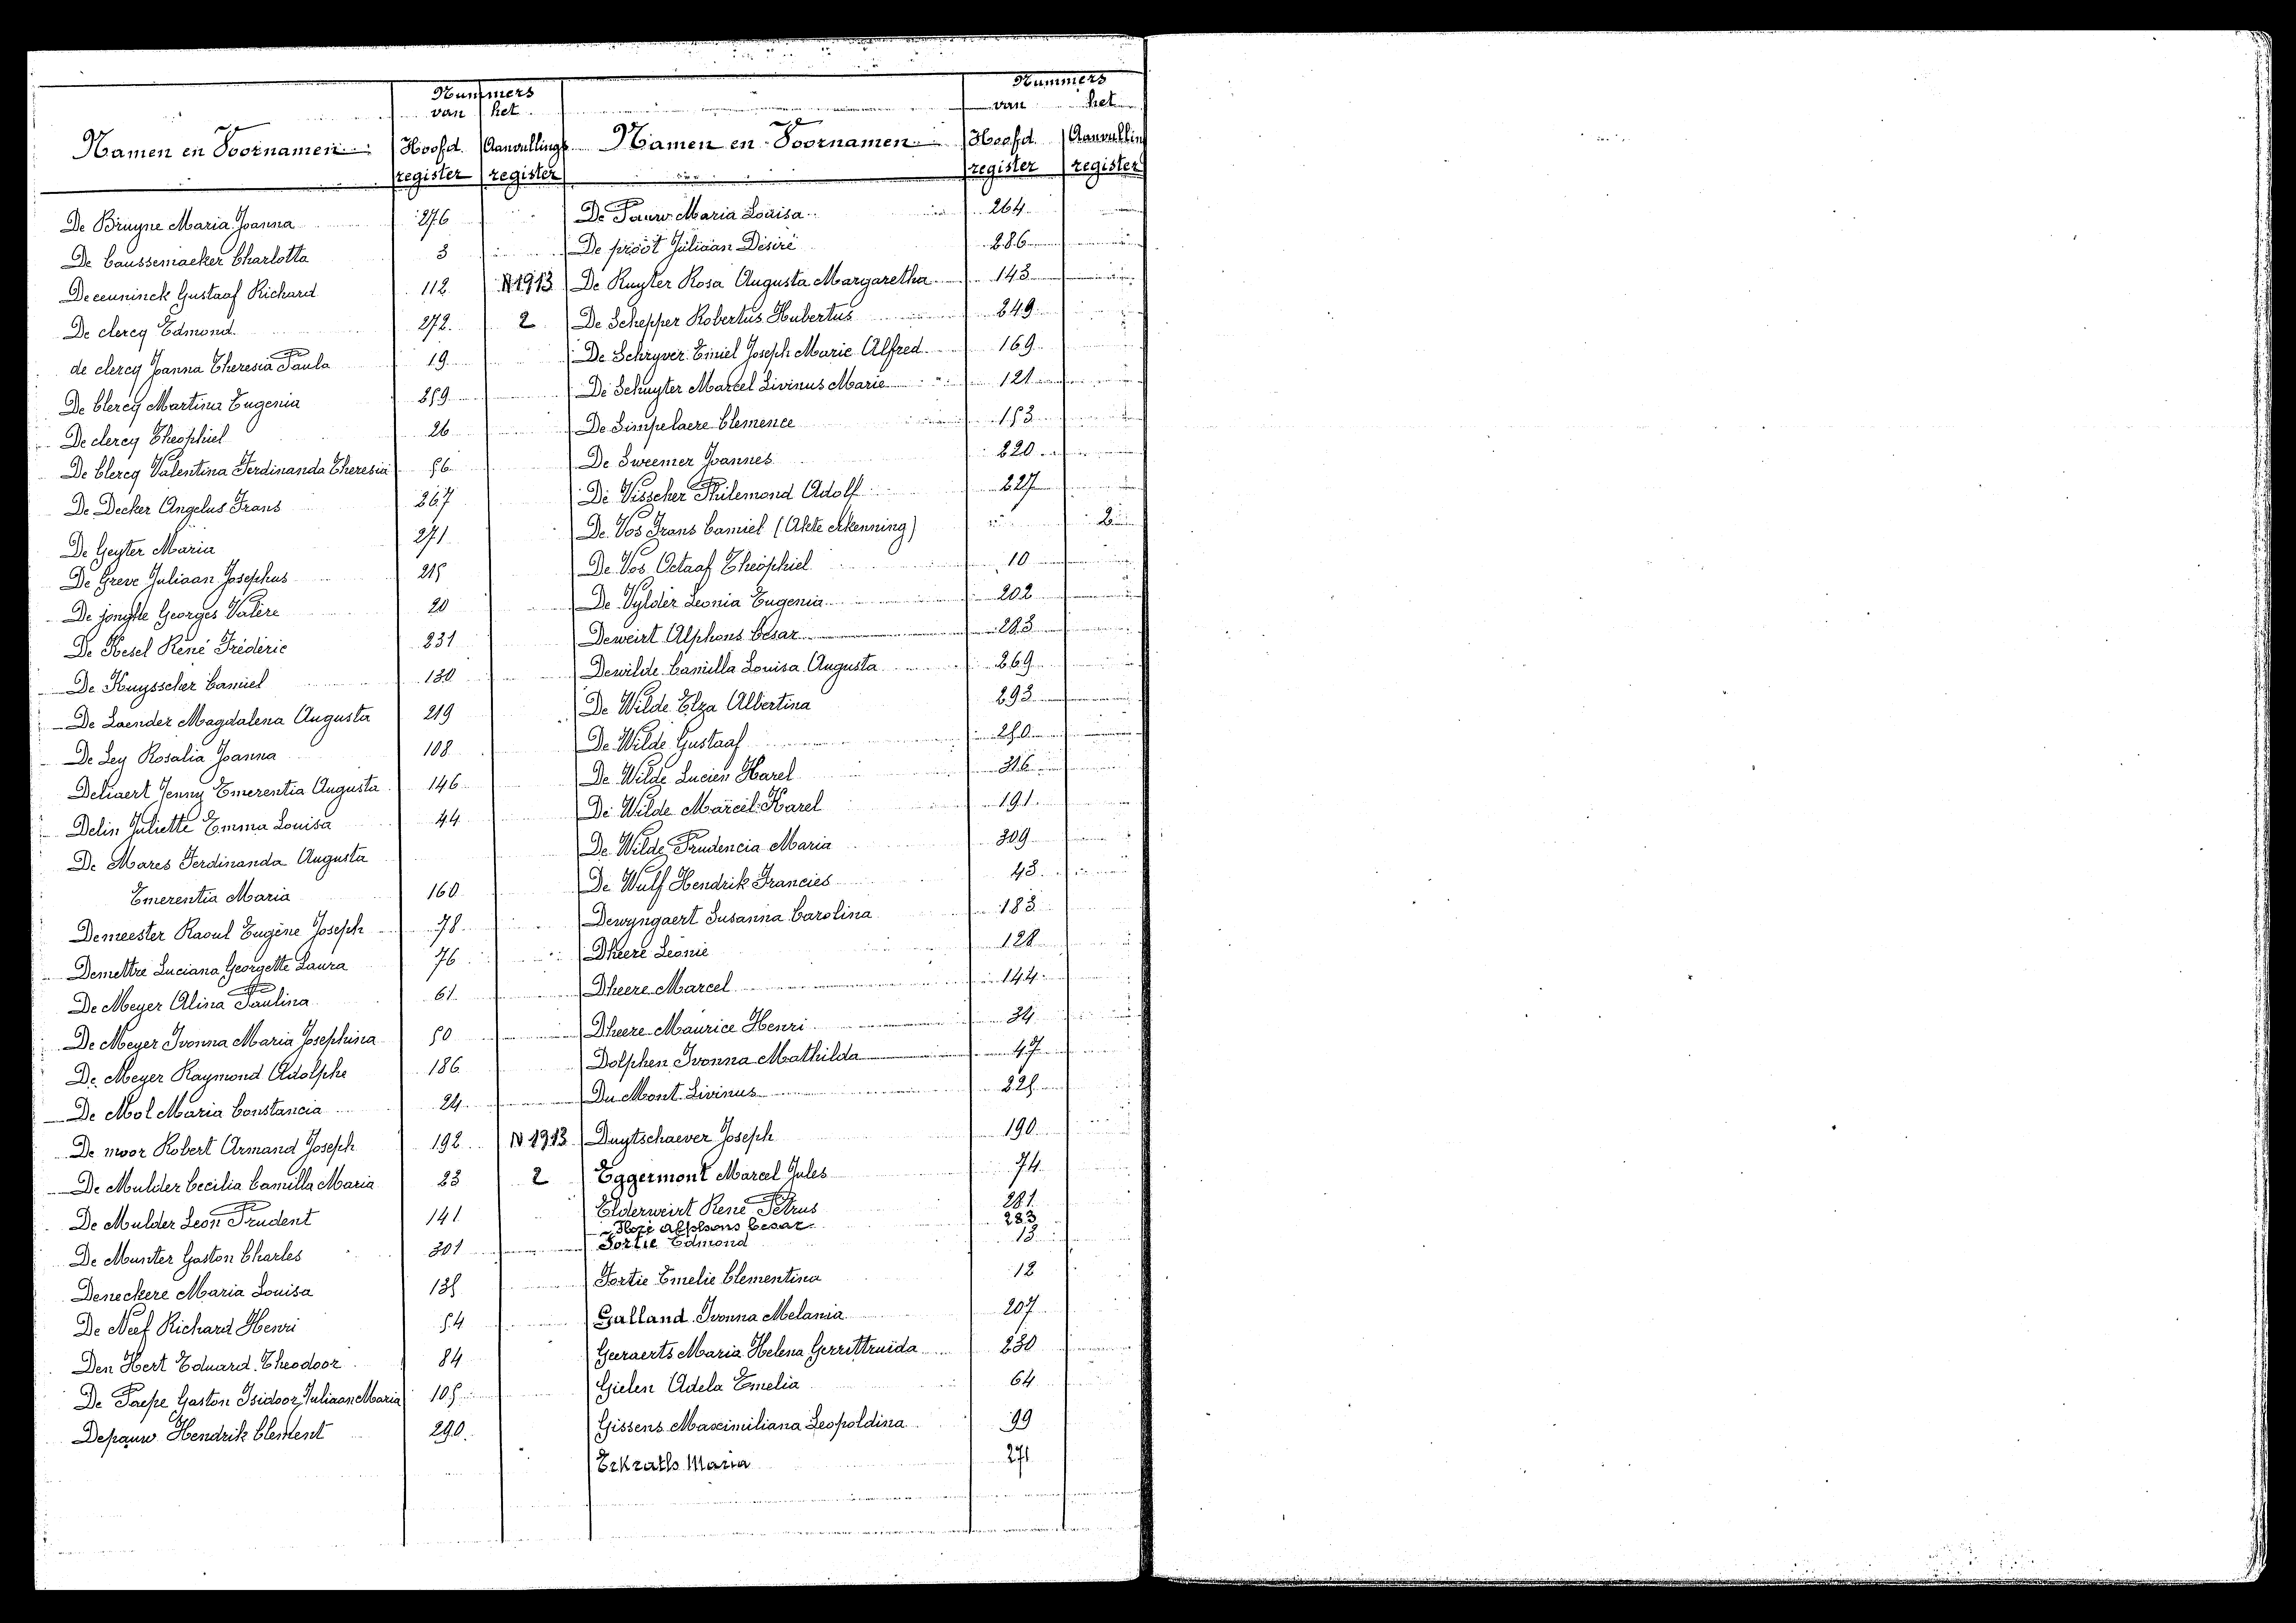 Nummers
van het
Namen en Voornamen Hoofd register Aanvullings register
De Bruyne Maria Joanna 276
De Caussemaeker Charlotta 3
Deceuninck Gustaaf Richard 112 N 1913
De clercq Edmond 272 2
de clercq Joanna Theresia Paula 19
De Clercq Martina Eugenia 259
De clercq Theophiel 26
De Clercq Valentina Ferdinanda Theresia 56
De Decker Angelus Frans 267
De Geyter Maria 271
De Greve Juliaan Josephus 215
De jonghe Georges Valère 20
De Kesel René Fréderic 231
De Kuysscher Camiel 130
De Laender Magdalena Augusta 219
De Ley Rosalia Joanna 108
Deliaert Jenny Emerentia Augusta 146
Delin Juliette Emma Louisa 44
De Mares Ferdinanda Augusta
Emerentia Maria 160
Demeester Raoul Eugène Joseph 78
Demettre Luciana Georgette Laura 76
De Meyer Alina Paulina 61
De Meyer Ivonna Maria Josephina 50
De Meyer Raymond Adolphe 186
De Mol Maria Constancia 24
De moor Robert Armand Joseph 192 N 1913
De Mulder Cecilia Camilla Maria 23 2
De Mulder Leon Prudent 141
De Munter Gaston Charles 301
Deneckere Maria Louisa 135
De Neef Richard Henri 54
Den Hert Eduard Theodoor 84
De Paepe Gaston Isidoor Juliaan Maria 105
Depauw Hendrik Clement 290
Nummers
van het
Namen en Voornamen Hoofd register Aanvullin register
De Pauw Maria Louisa 264
De proot Juliaan Désiré 286
De Ruyter Rosa Augusta Margaretha 143
De Schepper Robertus Hubertus 249
De Schryver Emiel Joseph Marie Alfred 169
De Schuyter Marcel Livinus Marie 121
De Simpelaere Clemence 153
De Sweemer Joannes 220
De Visscher Philemond Adolf 227
De Vos Frans Camiel (Akte erkenning) 2
De Vos Octaaf Theophiel 10
De Vylder Leonia Eugenia 202
Deweirt Alphons Cesar 283
Dewilde Camilla Louisa Augusta 269
De Wilde Elza Albertina 293
De Wilde Gustaaf 250
De Wilde Lucien Karel 316
De Wilde Marcel Karel 191
De Wilde Prudencia Maria 309
De Wulf Hendrik Francies 43
Dewyngaert Susanna Carolina 183
Dheere Leonie 128
Dheere Marcel 144
Dheere Maurice Henri 34
Dolphen Ivonna Mathilda 47
Du Mont Livinus 225
Duytschaever Joseph 190
Eggermont Marcel Jules 74
Elderweirt René Petrus 281
Floré Alphons Cesar 283
Fortie Edmond 13
Fortie Emelie Clementina 12
Galland Ivonna Melania 207
Geeraerts Maria Helena Gerrittruida 230
Gielen Adela Emelia 64
Gissens Maximiliana Leopoldina 99
Erkraths Maria 271